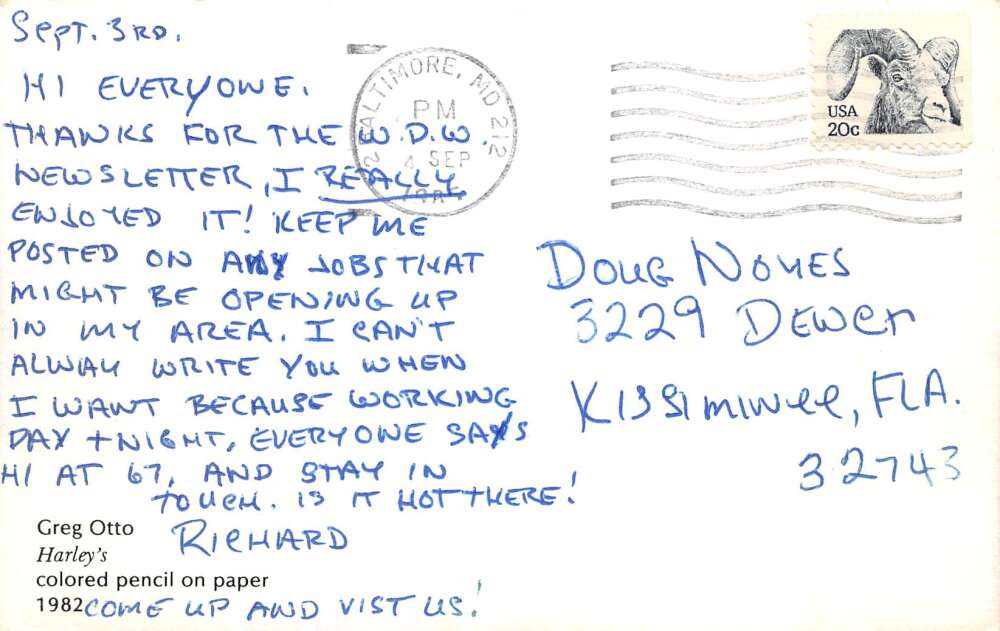 Sept. 3RD.
HI EVERYONE.
THANKS FOR THE W.D.W.
NEWSLETTER, I REALLY
ENJOYED IT! KEEP ME
POSTED ON ANY JOBS THAT
MIGHT BE OPENING UP
IN MY AREA. I CAN'T
ALWAY WRITE YOU WHEN
I WANT BECAUSE WORKING
DAY + NIGHT, EVERYONE SAYS
HI AT 67, AND STAY IN
TOUCH. IS IT HOT THERE!
RICHARD
COME UP AND VIST US!
Greg Otto
Harley's
colored pencil on paper
1982
BALTIMORE, MD 212
PM
4 SEP
USA
20c
DOUG NOYES
3229 DEWEY
KISSIMMEE, FLA.
32743